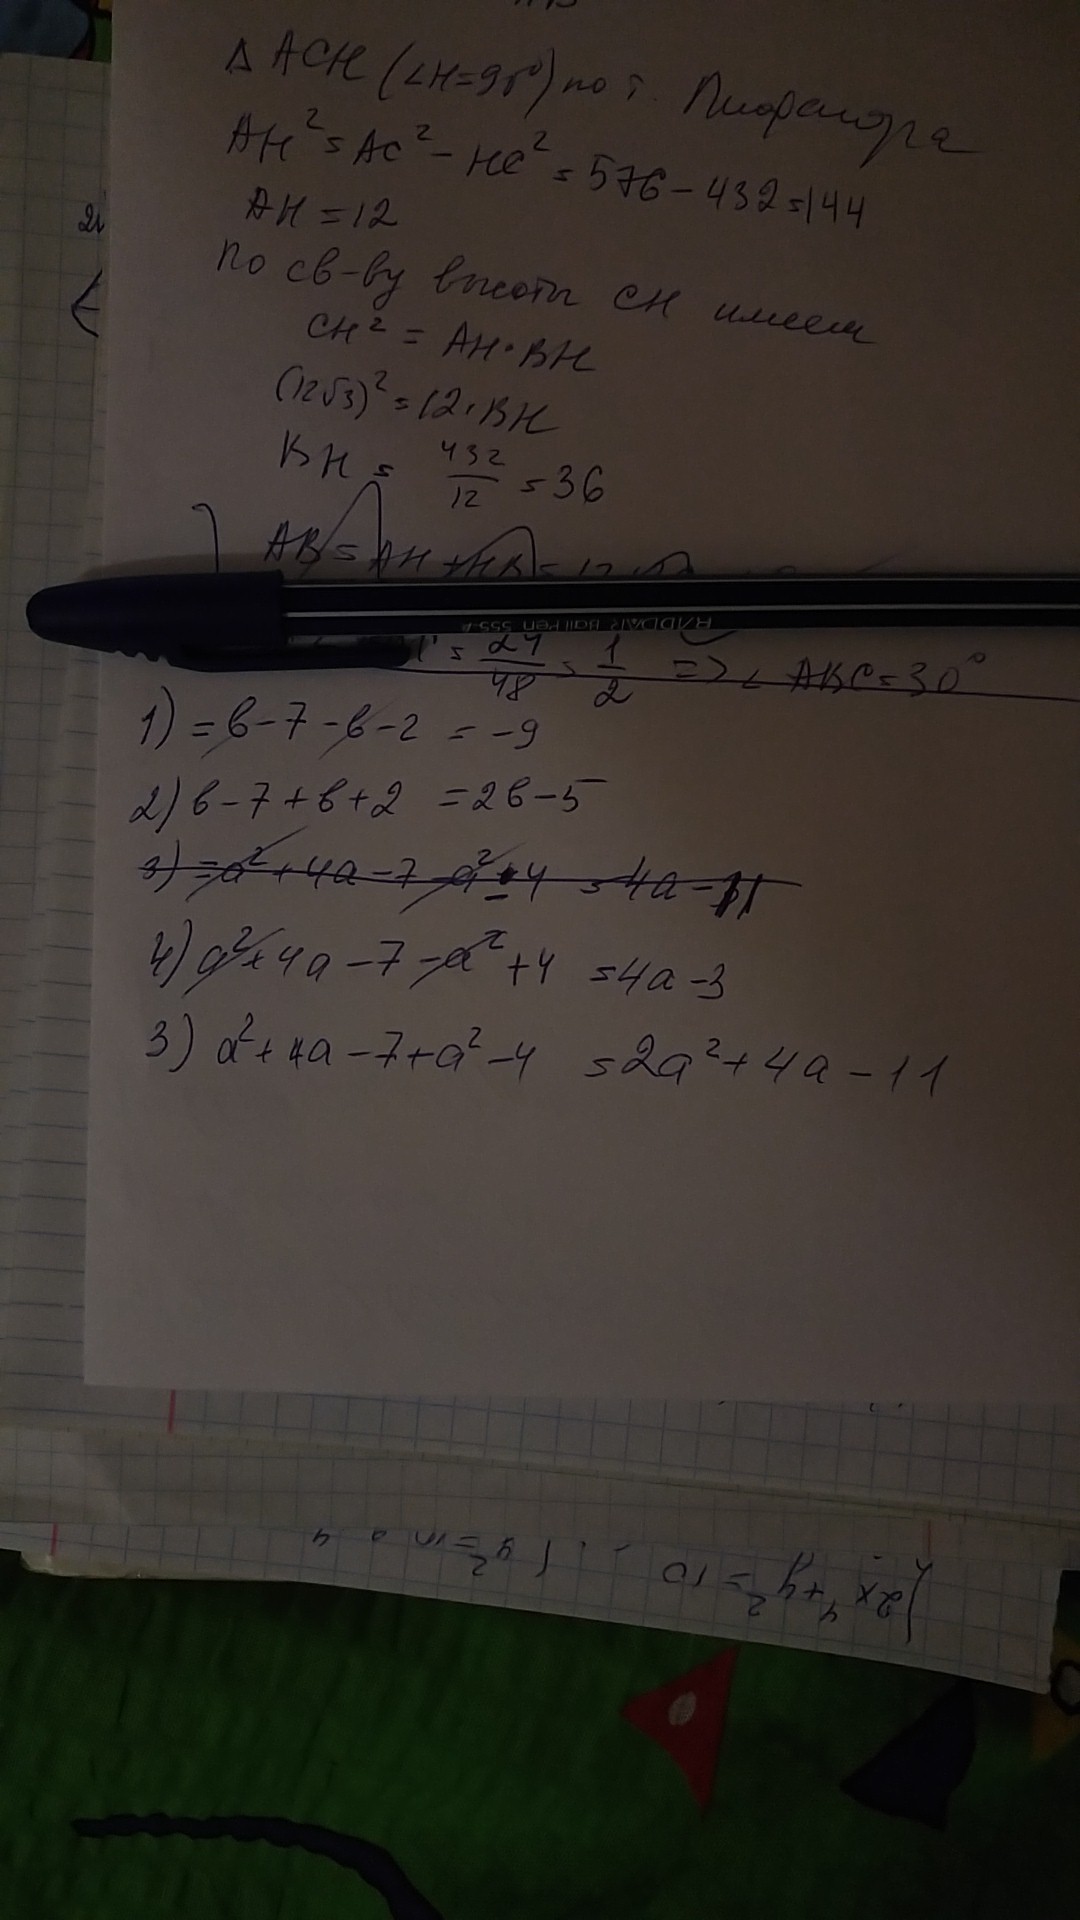 Δ ACH (∠H=90°) по т. Пифагора
AH² = AC² - HC² = 576 - 432 = 144
AH = 12
По св-ву высоты CH имеем
CH² = AH · BH
(12√3)² = 12 · BH
BH = 432/12 = 36
AB = AH + HB = 12
RADDAR Ball Pen 555
= 24/48 = 1/2 => ∠ABC = 30°
1) = в - 7 - в - 2 = -9
2) в - 7 + в + 2 = 2в - 5
3) = a² + 4a - 7 - a² - 4 = 4a - 11
4) a² + 4a - 7 - a² + 4 = 4a - 3
3) a² + 4a - 7 + a² - 4 = 2a² + 4a - 11